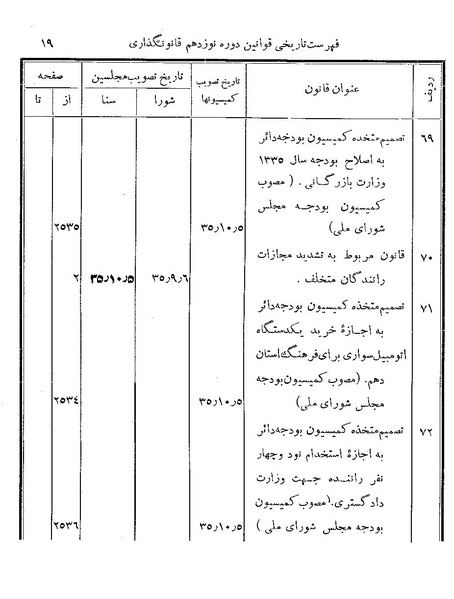 فهرست تاریخی قوانین دوره نوزدهم قانونگذاری ۱۹
ردیف عنوان قانون تاریخ تصویب کمیسیونها تاریخ تصویب مجلسین صفحه
شورا سنا از تا
۶۹ تصمیم متخذه کمیسیون بودجه دائر
به اصلاح بودجه سال ۱۳۳۵
وزارت بازرگانی . ( مصوب
کمیسیون بودجه مجلس
شورای ملی) ۳۵٫۱۰٫۵ ۲۵۳۵
۷۰ قانون مربوط به تشدید مجازات
رانندگان متخلف . ۳۵٫۹٫۶ ۳۵٫۱۰٫۵ ۲
۷۱ تصمیم متخذه کمیسیون بودجه دائر
به اجازهٔ خرید یکدستگاه
اتومبیل سواری برای فرهنگ استان
دهم. (مصوب کمیسیون بودجه
مجلس شورای ملی) ۳۵٫۱۰٫۵ ۲۵۳۴
۷۲ تصمیم متخذه کمیسیون بودجه دائر
به اجازهٔ استخدام نود و چهار
نفر راننده جهت وزارت
دادگستری. (مصوب کمیسیون
بودجه مجلس شورای ملی ) ۳۵٫۱۰٫۵ ۲۵۳۶